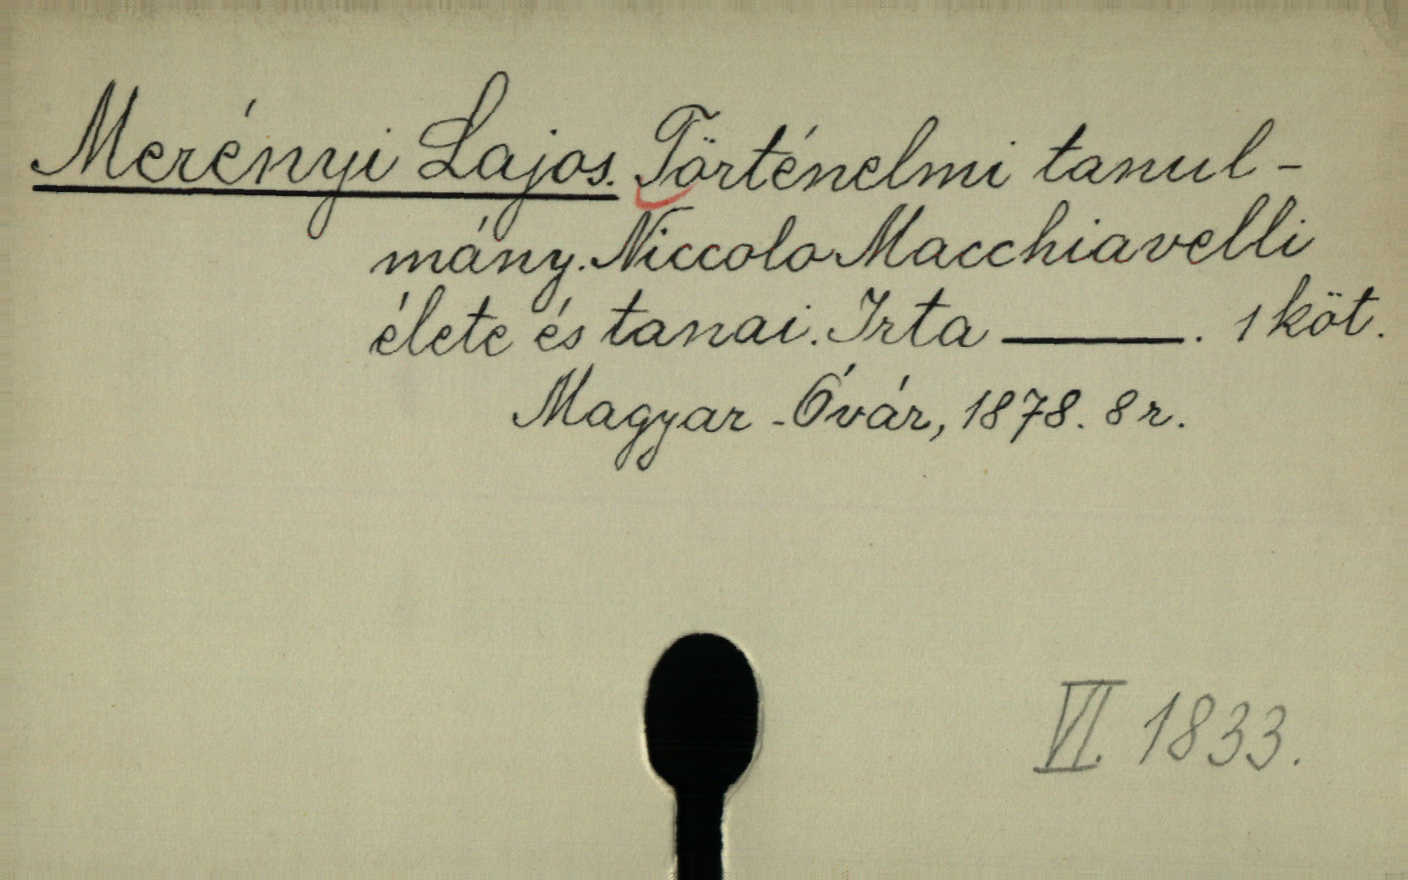 Merényi Lajos. Történelmi tanul-
mány. Niccolo Macchiavelli
élete és tanai. Irta ———. 1 köt.
Magyar-Óvár, 1878. 8r.
VI. 1833.